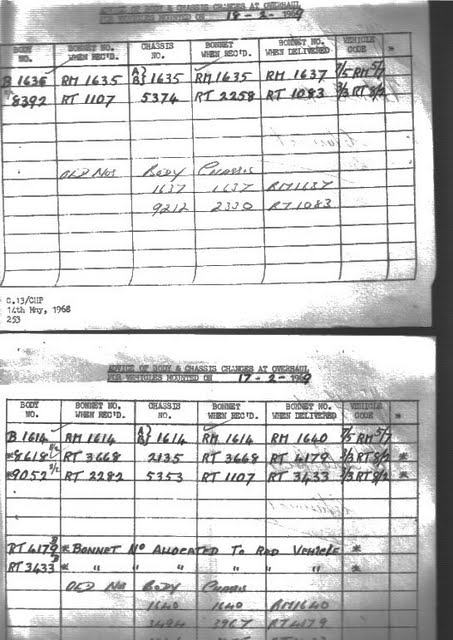 ADVICE OF BODY & CHASSIS CHANGES AT OVERHAUL
FOR VEHICLES MOUNTED ON 18-2-1969
BODY NO. BONNET NO. WHEN REC'D. CHASSIS NO. BONNET WHEN REC'D. BONNET NO. WHEN DELIVERED VEHICLE CODE *
B 1636 RM 1635 A} B} 1635 RM 1635 RM 1637 7/5 RM 5/7
8392 RT 1107 5374 RT 2258 RT 1083 3/3 RT 8/2
OLD NOS BODY CHASSIS
1637 1637 RM1637
9212 2330 RT1083
C.13/CHP
14th May, 1968
253
ADVICE OF BODY & CHASSIS CHANGES AT OVERHAUL
FOR VEHICLES MOUNTED ON 17-2-1969
BODY NO. BONNET NO. WHEN REC'D. CHASSIS NO. BONNET WHEN REC'D. BONNET NO. WHEN DELIVERED VEHICLE CODE *
B 1614 RM 1614 A} B} 1614 RM 1614 RM 1640 7/5 RM 5/7
*8618 8/2 RT 3668 2135 RT 3668 RT 4179 3/3 RT 8/2 *
*9052 8/2 RT 2282 5353 RT 1107 RT 3433 3/3 RT 8/2 *
RT 4179 * BONNET NO ALLOCATED TO RAD VEHICLE *
RT 3433 * " " " " " *
OLD NOS BODY CHASSIS
1640 1640 RM1640
3494 3967 RT4179